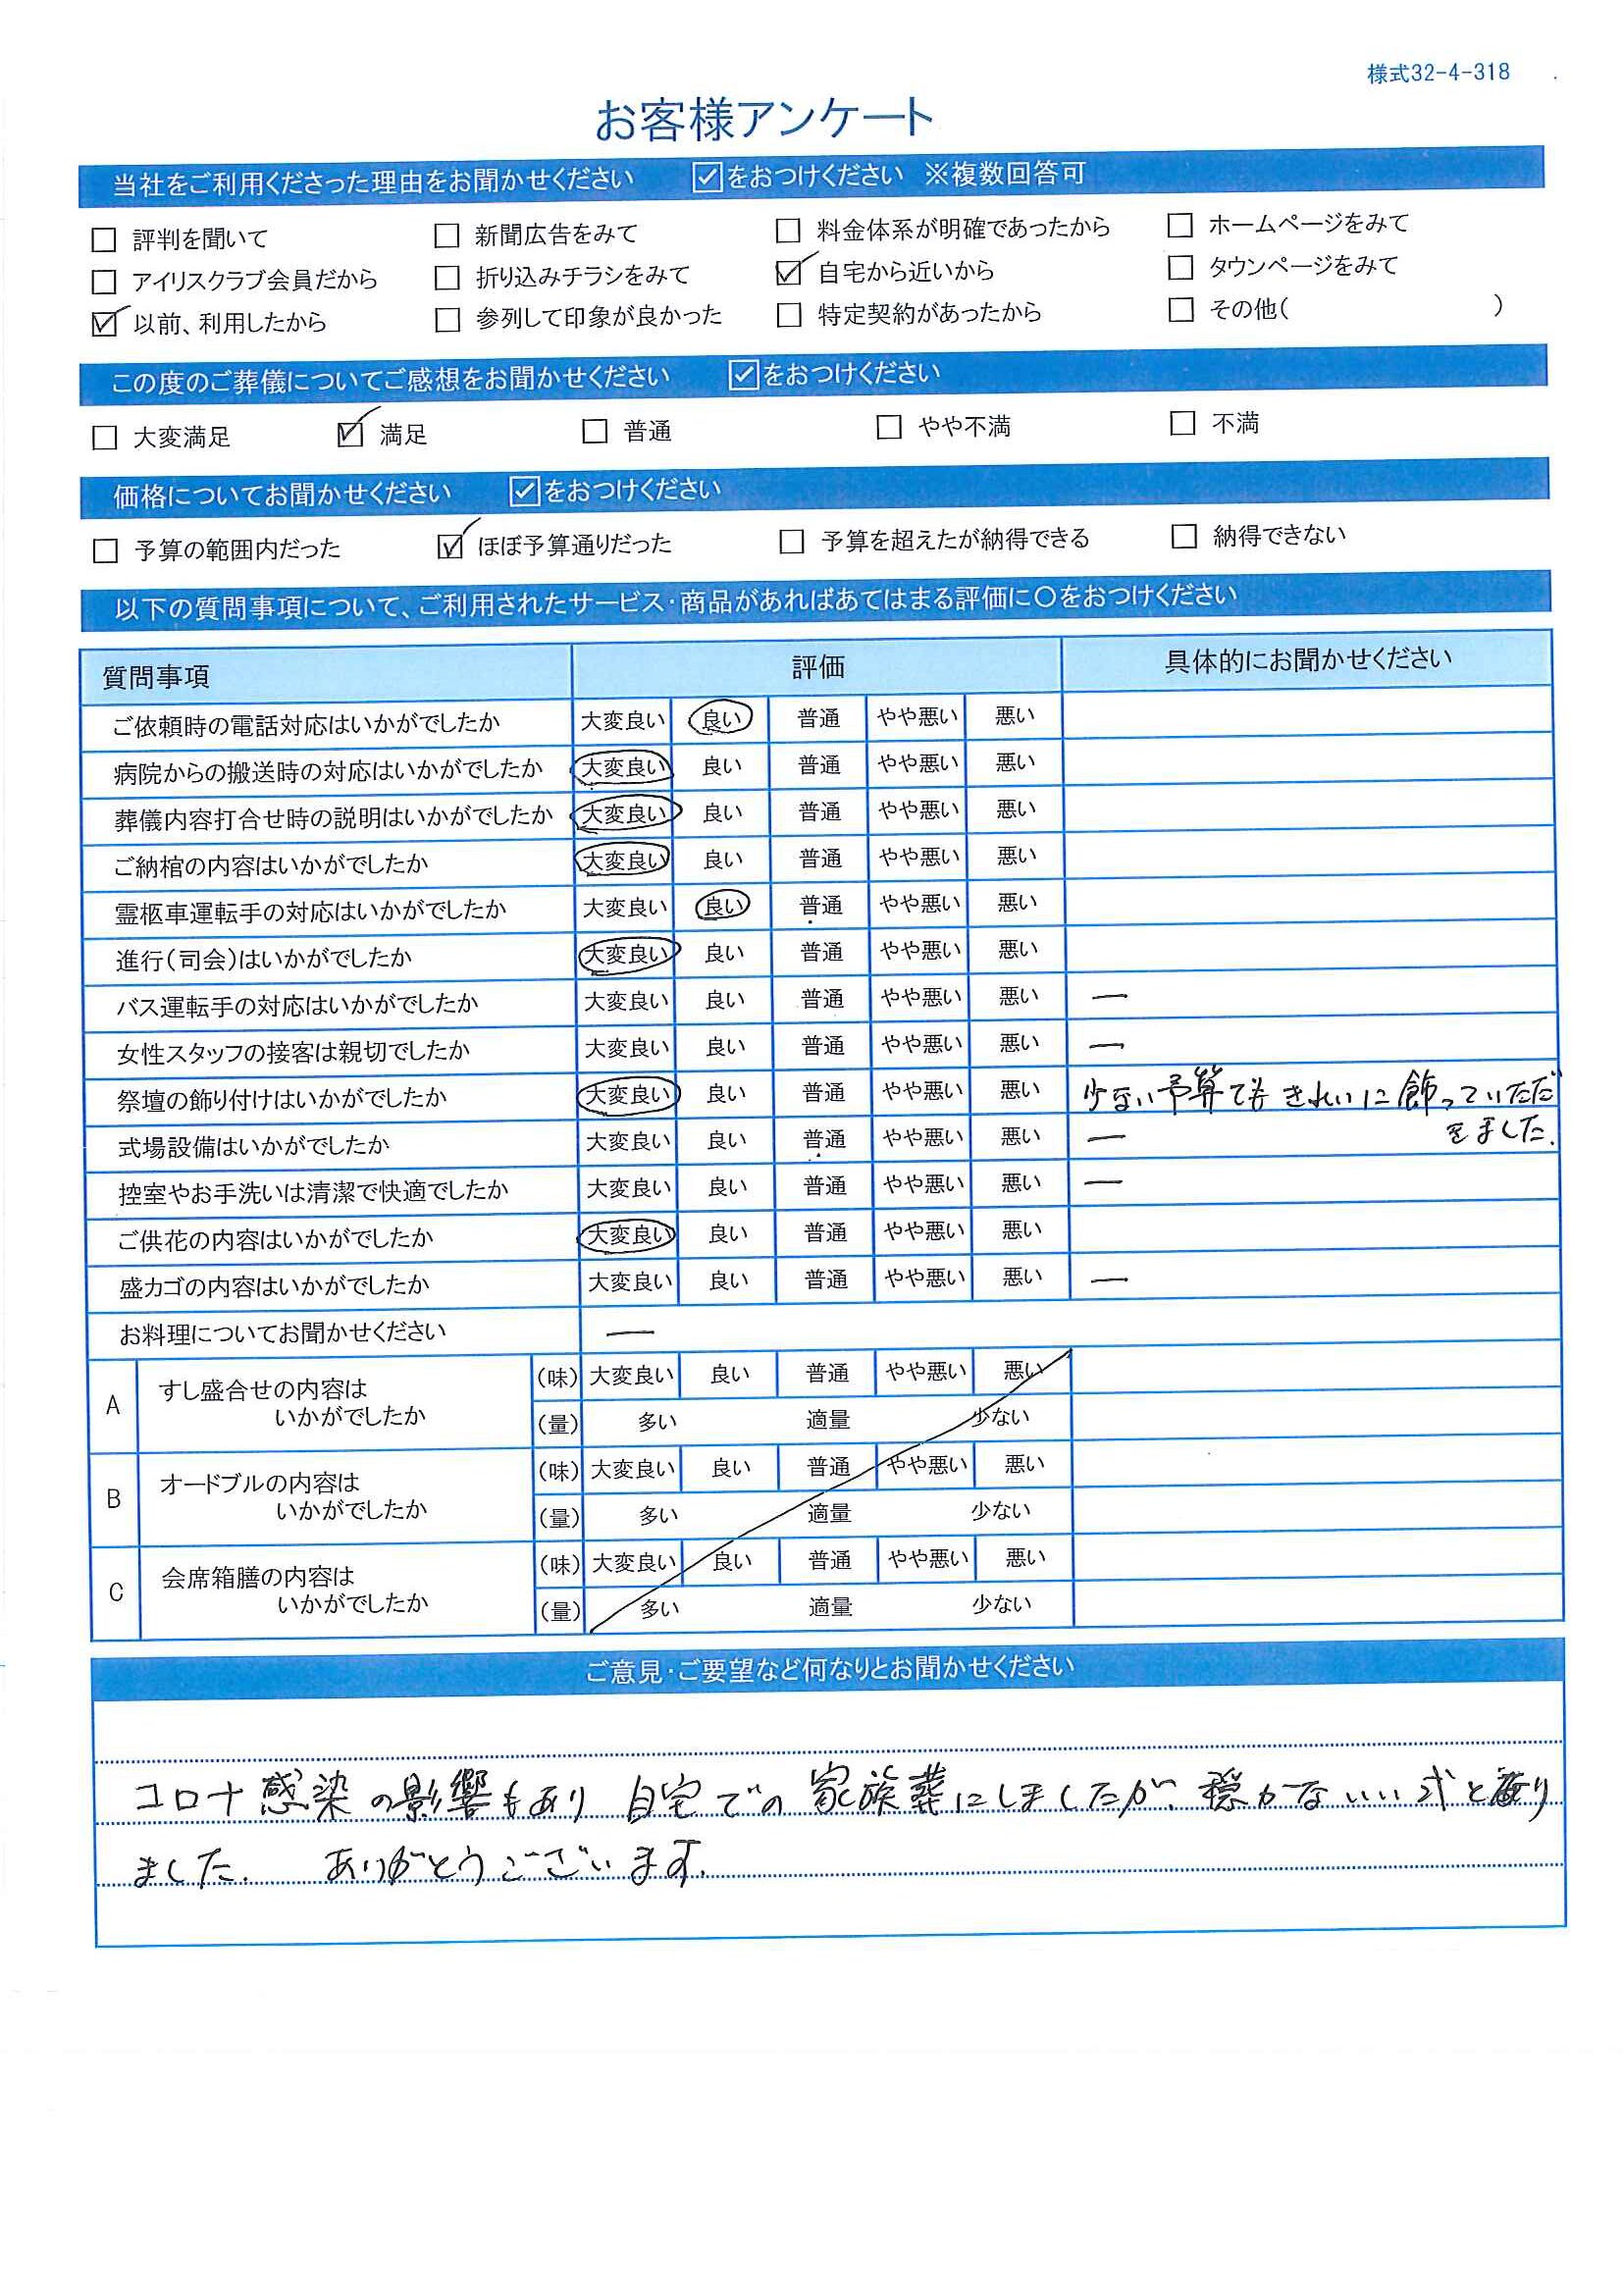 様式32-4-318
お客様アンケート
当社をご利用くださった理由をお聞かせください ☑をおつけください ※複数回答可
☐ 評判を聞いて ☐ 新聞広告をみて ☐ 料金体系が明確であったから ☐ ホームページをみて
☐ アイリスクラブ会員だから ☐ 折り込みチラシをみて ☑ 自宅から近いから ☐ タウンページをみて
☑ 以前、利用したから ☐ 参列して印象が良かった ☐ 特定契約があったから ☐ その他( )
この度のご葬儀についてご感想をお聞かせください ☑をおつけください
☐ 大変満足 ☑ 満足 ☐ 普通 ☐ やや不満 ☐ 不満
価格についてお聞かせください ☑をおつけください
☐ 予算の範囲内だった ☑ ほぼ予算通りだった ☐ 予算を超えたが納得できる ☐ 納得できない
以下の質問事項について、ご利用されたサービス・商品があればあてはまる評価に〇をおつけください
質問事項 評価 具体的にお聞かせください
ご依頼時の電話対応はいかがでしたか 大変良い 良い 普通 やや悪い 悪い
病院からの搬送時の対応はいかがでしたか 大変良い 良い 普通 やや悪い 悪い
葬儀内容打合せ時の説明はいかがでしたか 大変良い 良い 普通 やや悪い 悪い
ご納棺の内容はいかがでしたか 大変良い 良い 普通 やや悪い 悪い
霊柩車運転手の対応はいかがでしたか 大変良い 良い 普通 やや悪い 悪い
進行(司会)はいかがでしたか 大変良い 良い 普通 やや悪い 悪い
バス運転手の対応はいかがでしたか 大変良い 良い 普通 やや悪い 悪い ―
女性スタッフの接客は親切でしたか 大変良い 良い 普通 やや悪い 悪い ―
祭壇の飾り付けはいかがでしたか 大変良い 良い 普通 やや悪い 悪い 少ない予算でも きれいに飾っていただ
きました.
式場設備はいかがでしたか 大変良い 良い 普通 やや悪い 悪い ―
控室やお手洗いは清潔で快適でしたか 大変良い 良い 普通 やや悪い 悪い ―
ご供花の内容はいかがでしたか 大変良い 良い 普通 やや悪い 悪い
盛カゴの内容はいかがでしたか 大変良い 良い 普通 やや悪い 悪い ―
お料理についてお聞かせください ―
A すし盛合せの内容は (味) 大変良い 良い 普通 やや悪い 悪い
いかがでしたか (量) 多い 適量 少ない
B オードブルの内容は (味) 大変良い 良い 普通 やや悪い 悪い
いかがでしたか (量) 多い 適量 少ない
C 会席箱膳の内容は (味) 大変良い 良い 普通 やや悪い 悪い
いかがでしたか (量) 多い 適量 少ない
ご意見・ご要望など何なりとお聞かせください
コロナ感染の影響もあり 自宅での 家族葬にしましたが、穏かないい式と なり
ました. ありがとうございます.